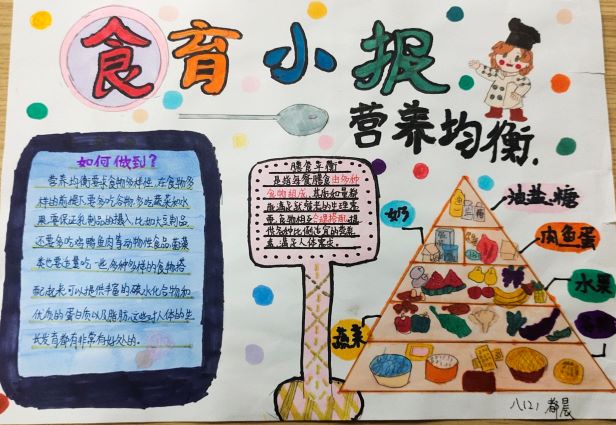 食育小报
营养均衡.
如何做到？
营养均衡要求食物多样性,在食物多
样的前提下要多吃谷物,多吃蔬菜和水
果,要保证乳制品的摄入,比如大豆制品
还要多吃鸡鸭鱼肉等动物性食品,菌藻
类也要适量吃,
多种多样的食物搭
配起来可以提供丰富的碳水化合物和
优质的蛋白质以及脂肪,这些对人体的生
长发育都有非常有好处的.
膳食平衡
是指每餐膳食由多种
食物组成,
合理搭配,
满足人体需求。
油盐、糖
肉鱼蛋
水果
蔬菜
八(2) 郗晨